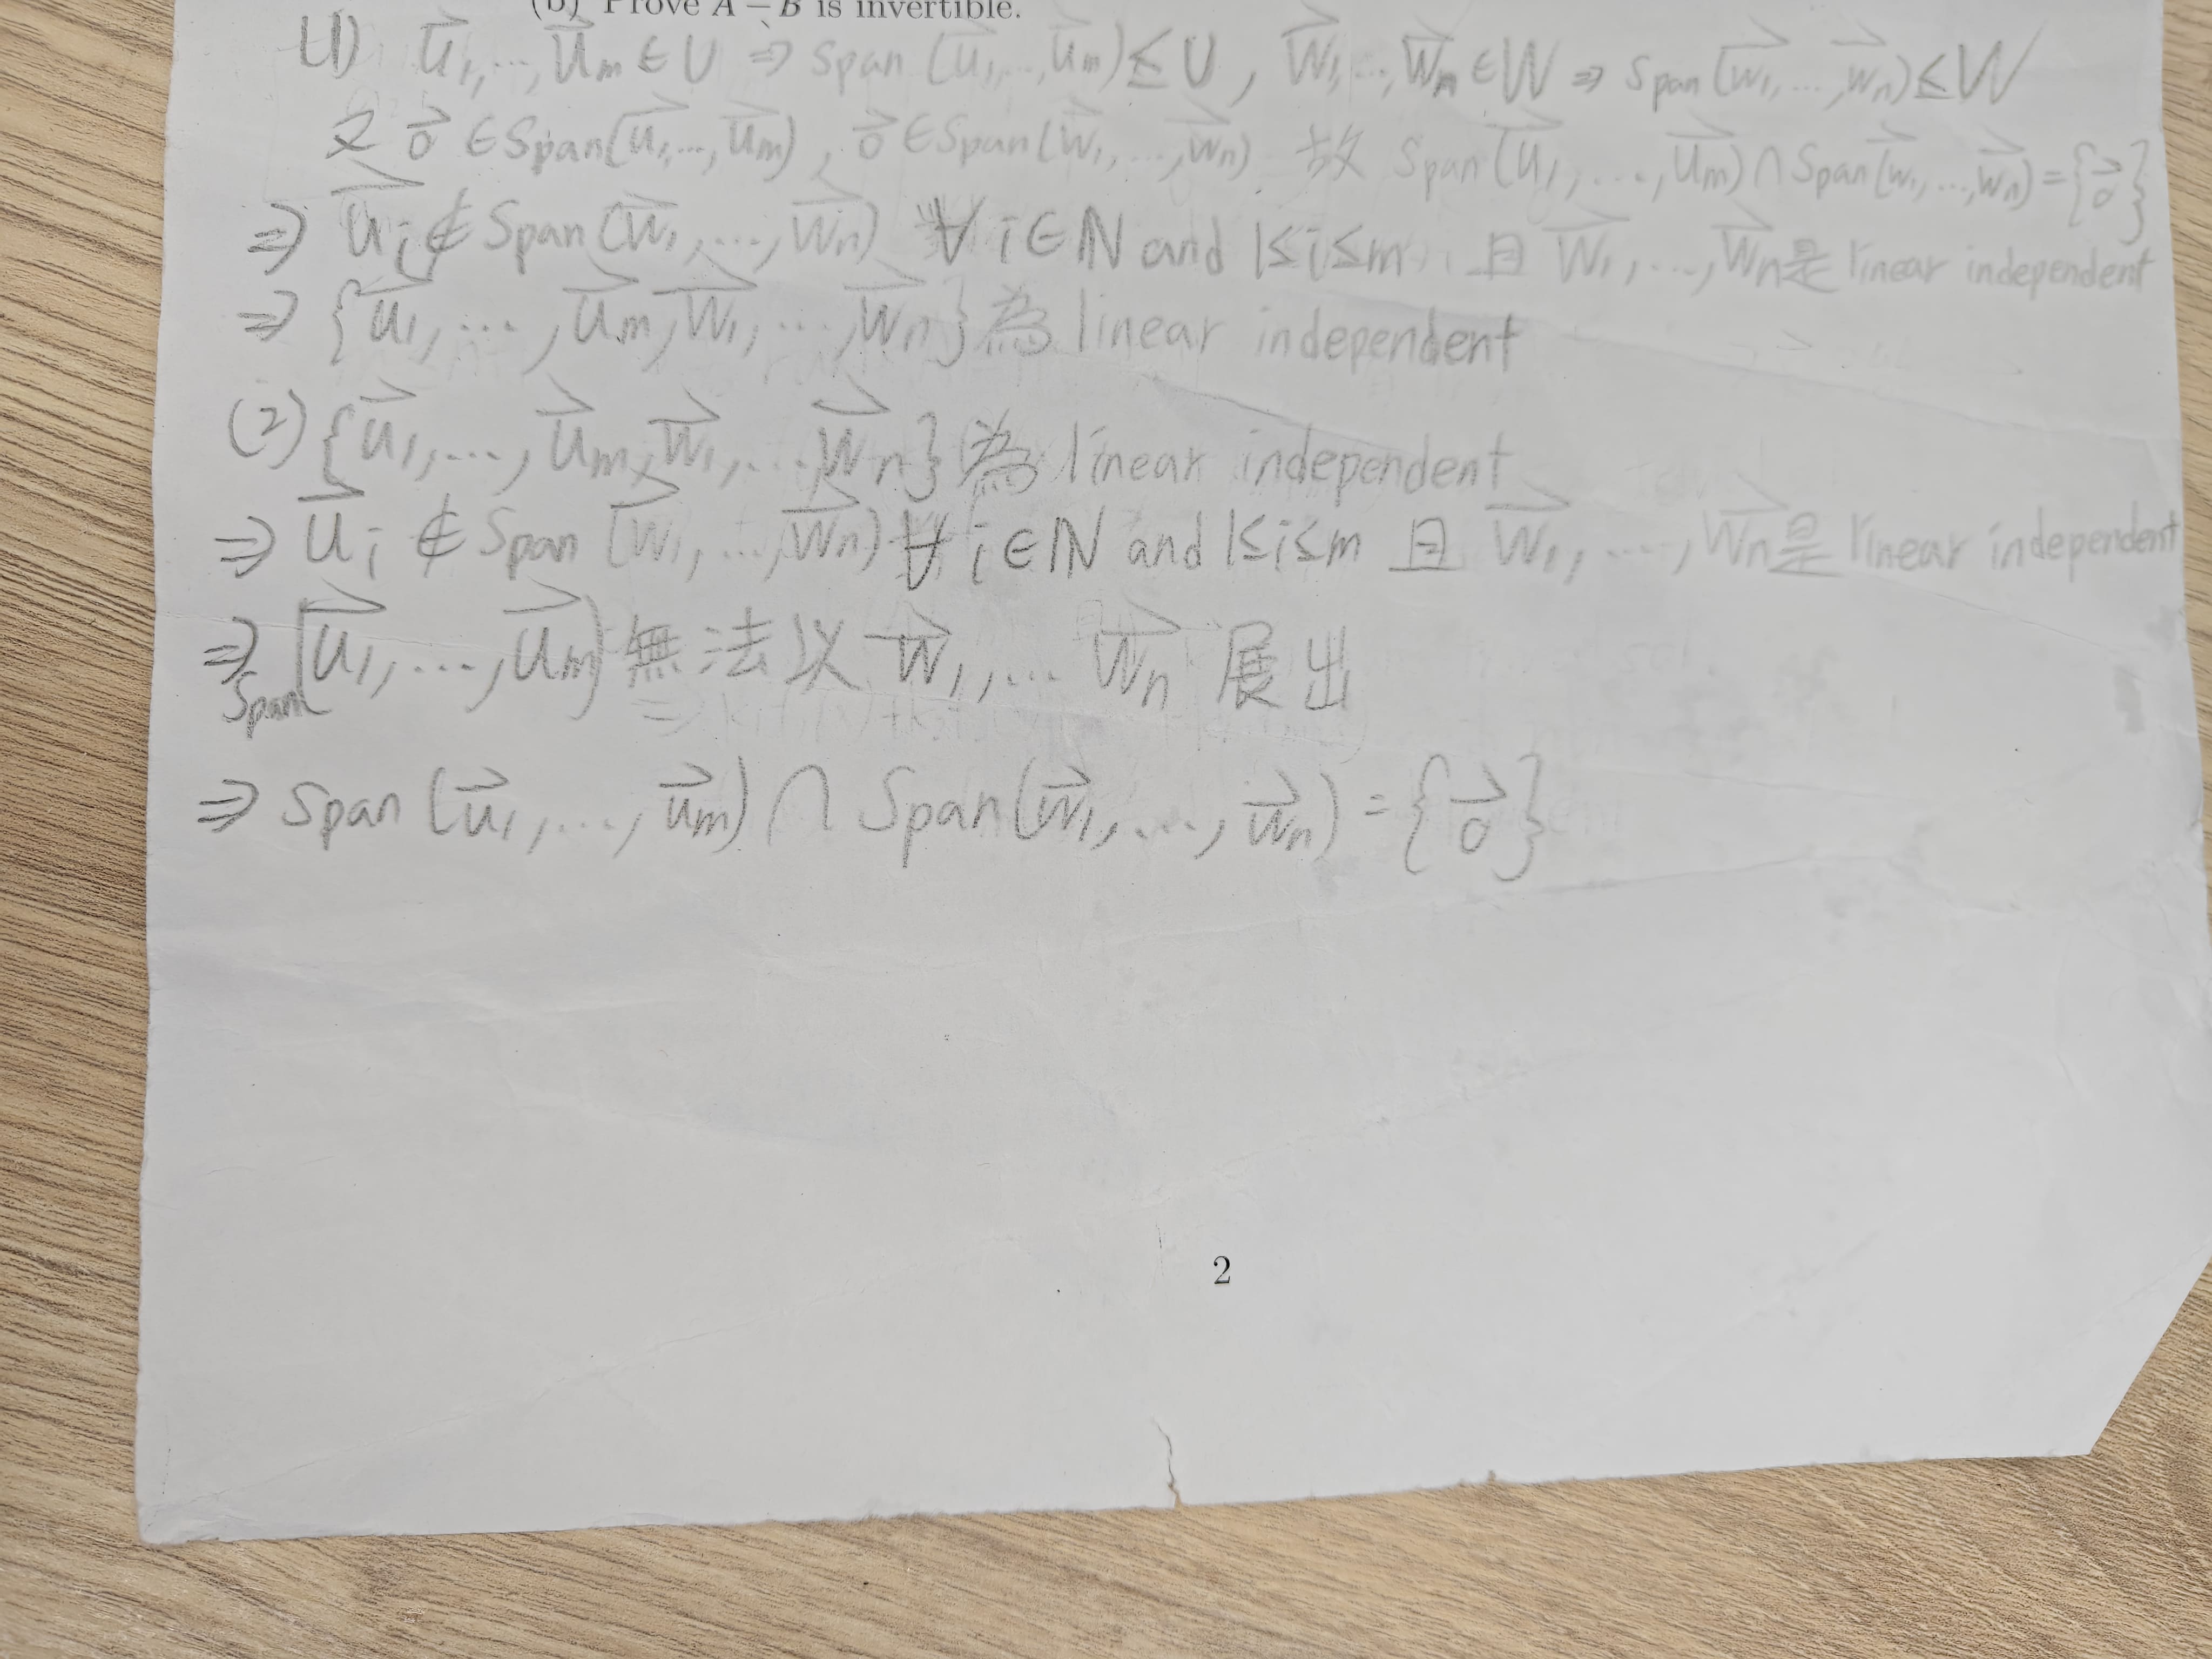 (b) Prove A − B is invertible.
(1) u⃗₁,…,u⃗ₘ ∈ U ⇒ span (u⃗₁,…,u⃗ₘ) ≤ U , w⃗₁,…,w⃗ₘ ∈ W ⇒ span(w⃗₁,…,w⃗ₙ) ≤ W
又 0⃗ ∈ Span(u⃗₁,…,u⃗ₘ) , 0⃗ ∈ Span(w⃗₁,…,w⃗ₙ) 故 Span(u⃗₁,…,u⃗ₘ) ∩ Span(w⃗₁,…,w⃗ₙ) = {0⃗}
⇒ u⃗ᵢ ∉ Span(w⃗₁,…,w⃗ₙ) ∀ i ∈ ℕ and 1≤i≤m 且 w⃗₁,…,w⃗ₙ是 linear independent
⇒ {u⃗₁,…,u⃗ₘ,w⃗₁,…,w⃗ₙ}為 linear independent
(2) {u⃗₁,…,u⃗ₘ,w⃗₁,…,w⃗ₙ}為 linear independent
⇒ u⃗ᵢ ∉ Span (w⃗₁,…,w⃗ₙ) ∀ i ∈ ℕ and 1≤i≤m 且 w⃗₁,…,w⃗ₙ是 linear independent
⇒ Span(u⃗₁,…,u⃗ₘ) 無法以 w⃗₁,…w⃗ₙ 展出
⇒ Span (u⃗₁,…,u⃗ₘ) ∩ Span(w⃗₁,…,w⃗ₙ) = {0⃗}
2